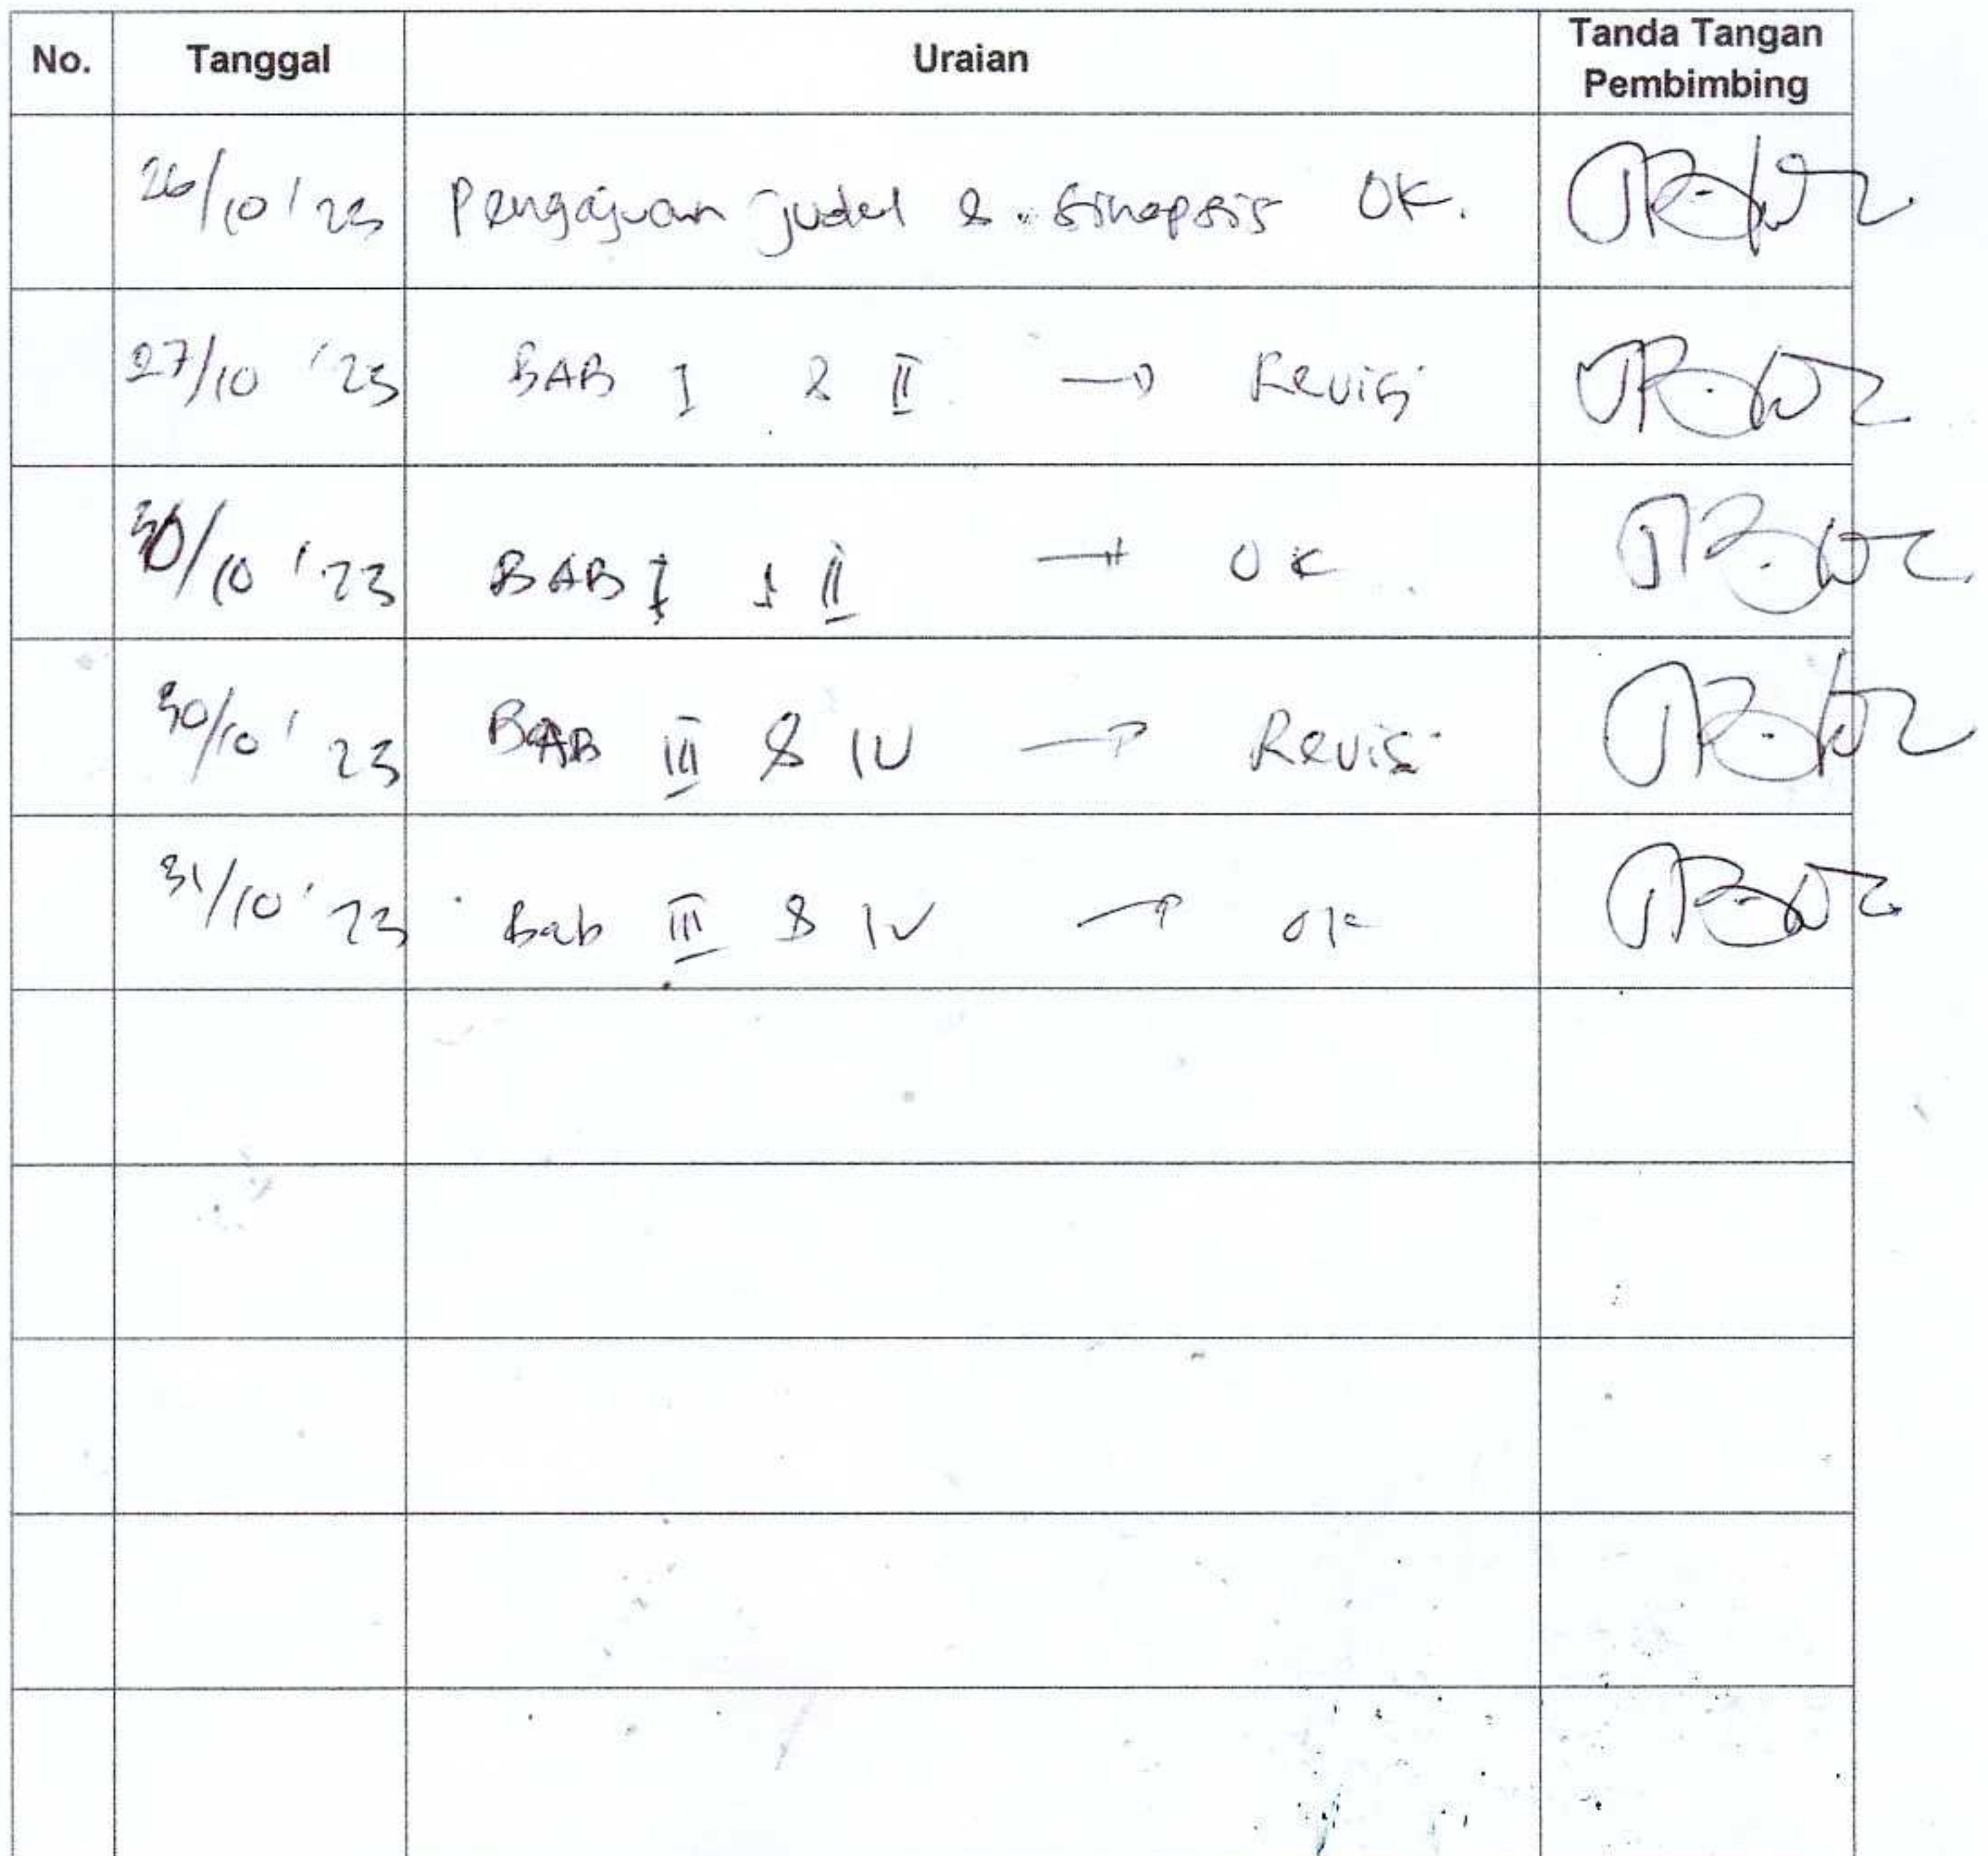 No. Tanggal Uraian Tanda Tangan Pembimbing
26/10 '23 Pengajuan judul & Sinopsis OK.
27/10 '23 BAB I & II → Revisi
30/10 '23 BAB I & II → OK
30/10 '23 BAB III & IV → Revisi
31/10 '23 Bab III & IV → OK